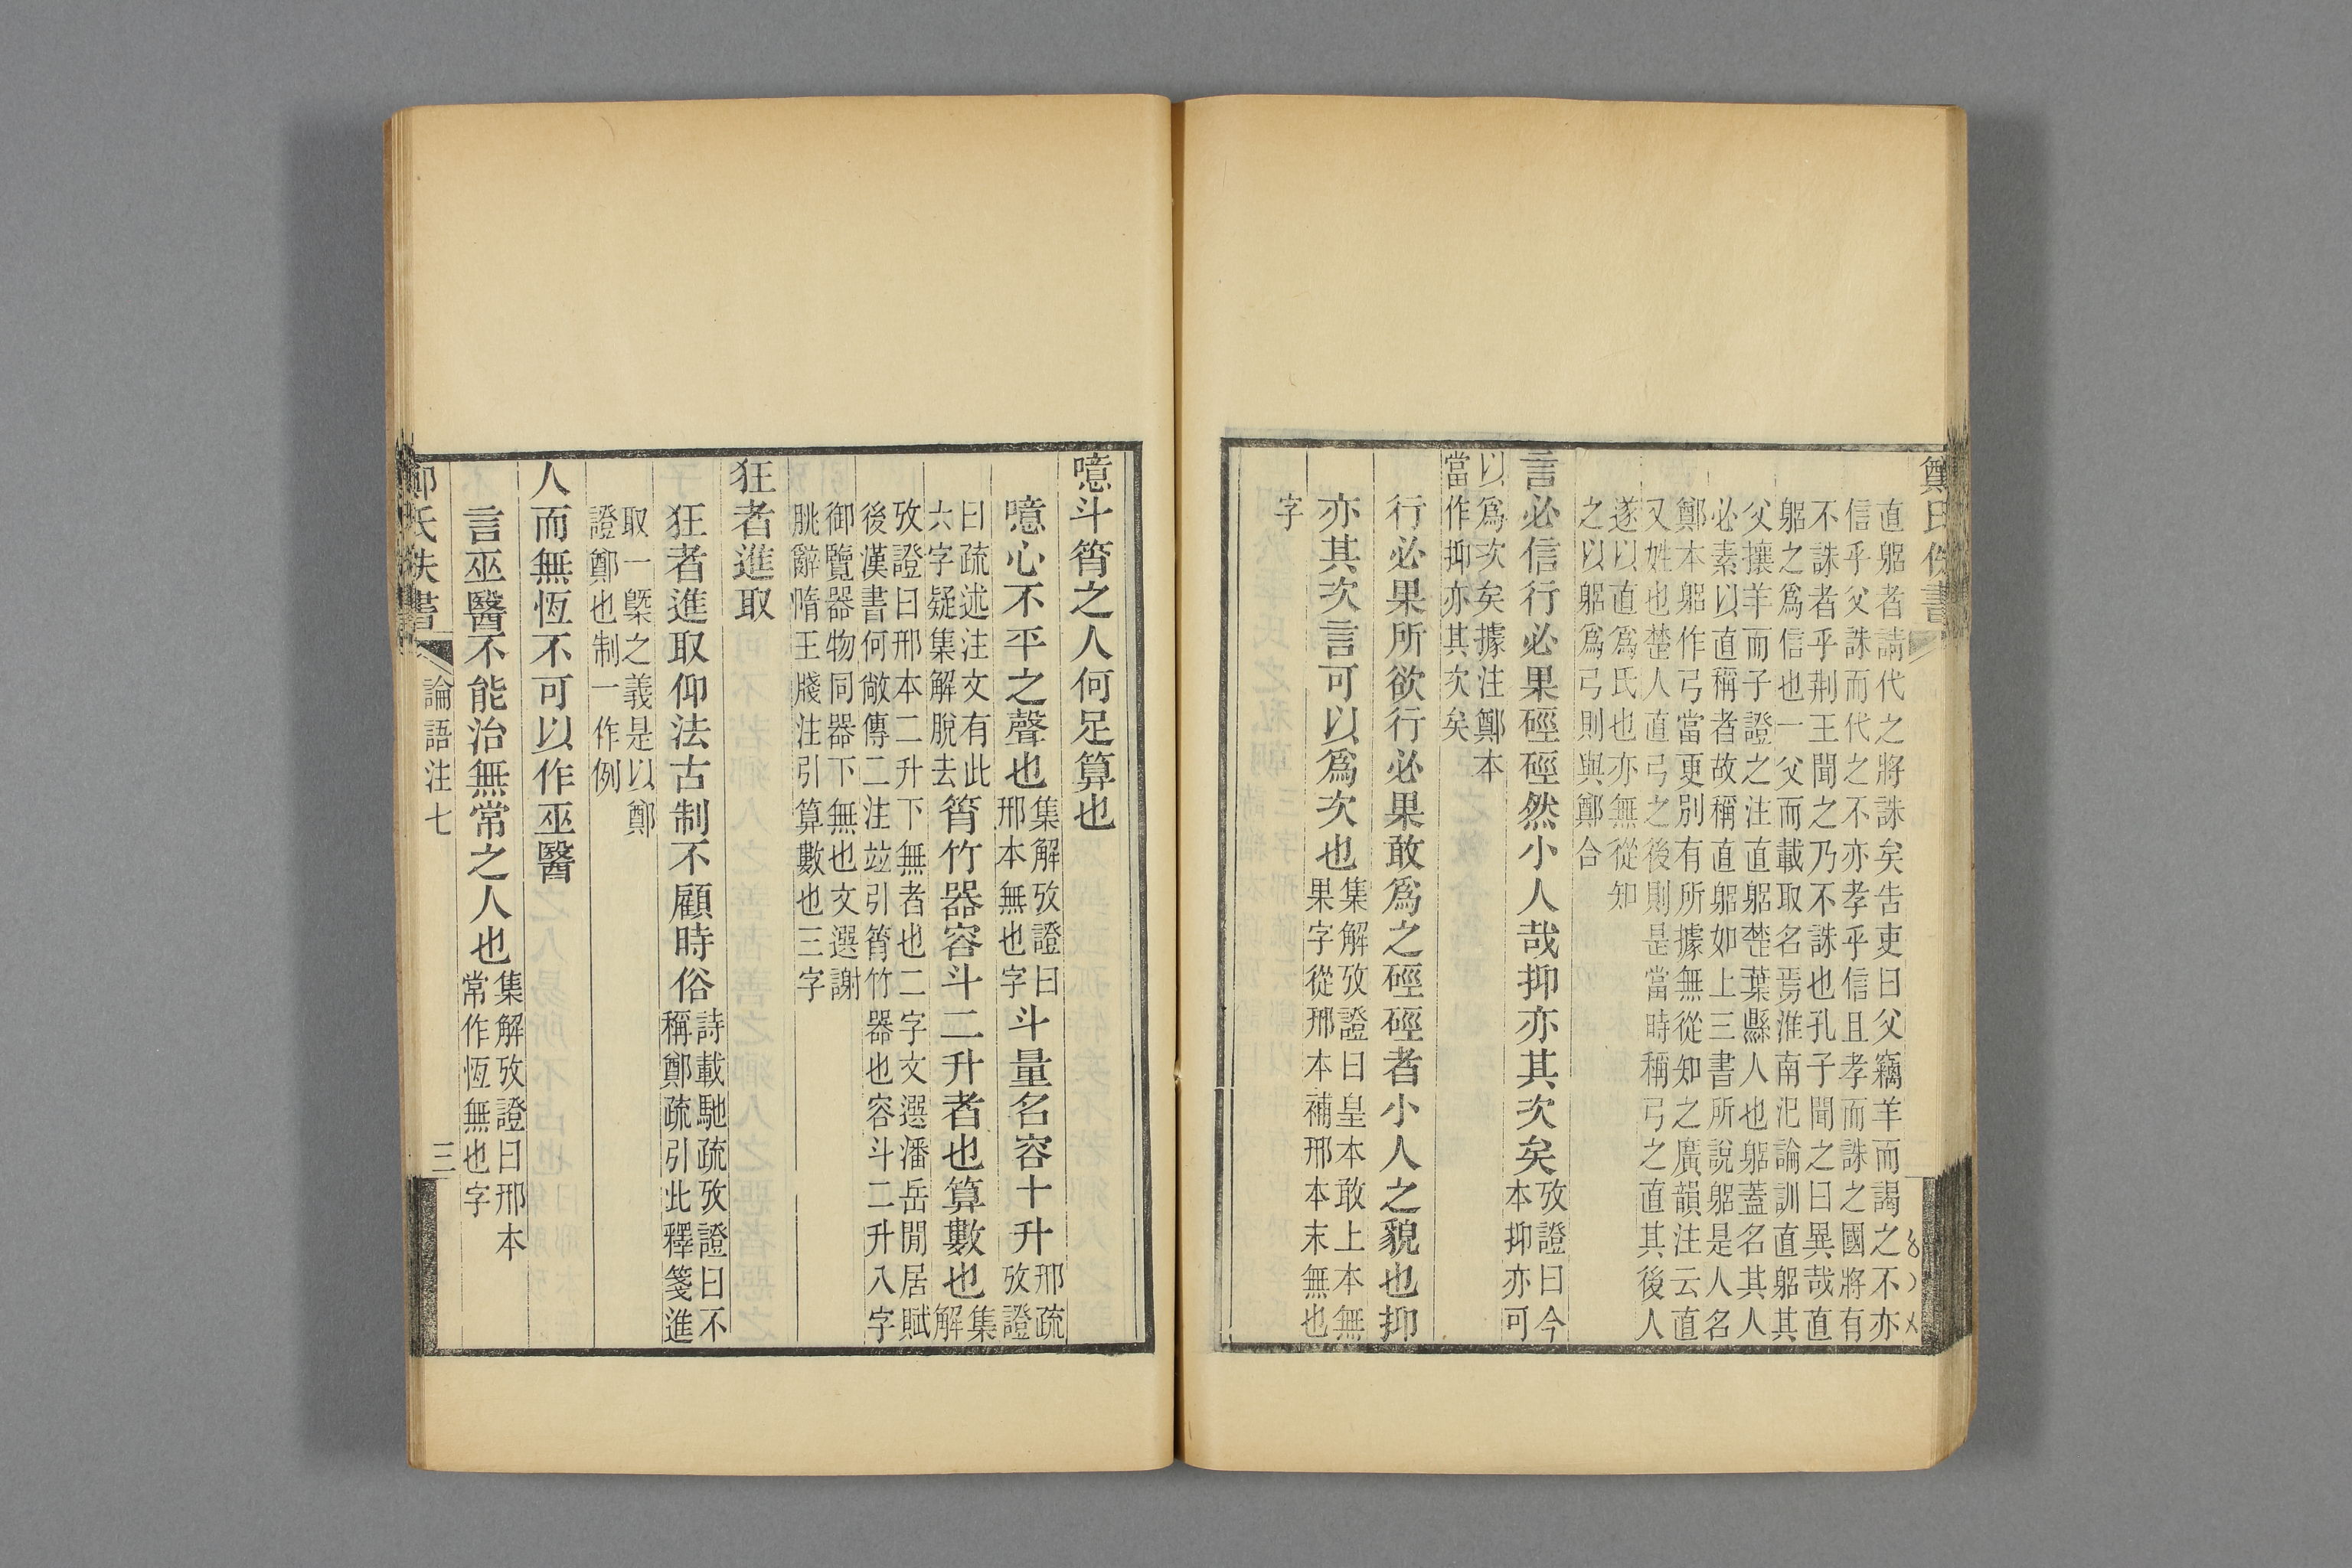 鄭氏佚書
直躳者請代之將誅矣告吏曰父竊羊而謁之不亦
信乎父誅而代之不亦孝乎信且孝而誅之國將有
不誅者乎荆王聞之乃不誅也孔子聞之曰異哉直
躳之爲信也一父而載取名焉淮南汜論訓直躳其
父攘羊而子證之注直躳楚葉縣人也躳蓋名其人
必素以直稱者故稱直躳如上三書所說躳是人名
鄭本躳作弓當更別有所據無從知之廣韻注云直
又姓也楚人直弓之後則是當時稱弓之直其後人
遂以直爲氏也亦無從知
之以躳爲弓則與鄭合
言必信行必果硜硜然小人哉抑亦其次矣
攷證曰今
本抑亦可
以爲次矣據注鄭本
當作抑亦其次矣
行必果所欲行必果敢爲之硜硜者小人之貌也抑
亦其次言可以爲次也
集解攷證曰皇本敢上本無
果字從邢本補邢本末無也
字
噫斗筲之人何足算也
噫心不平之聲也
集解攷證曰
邢本無也字
斗量名容十升
邢疏
攷證
曰疏述注文有此
六字疑集解脫去
筲竹器容斗二升者也算數也
集
解
攷證曰邢本二升下無者也二字文選潘岳閒居賦
後漢書何敞傳二注竝引筲竹器也容斗二升八字
御覽器物同器下無也文選謝
朓辭隋王牋注引算數也三字
狂者進取
狂者進取仰法古制不顧時俗
詩載馳疏攷證曰不
稱鄭疏引此釋箋進
取一槩之義是以鄭
證鄭也制一作例
人而無恆不可以作巫醫
言巫醫不能治無常之人也
集解攷證曰邢本
常作恆無也字
鄭氏佚書
論語注七
三